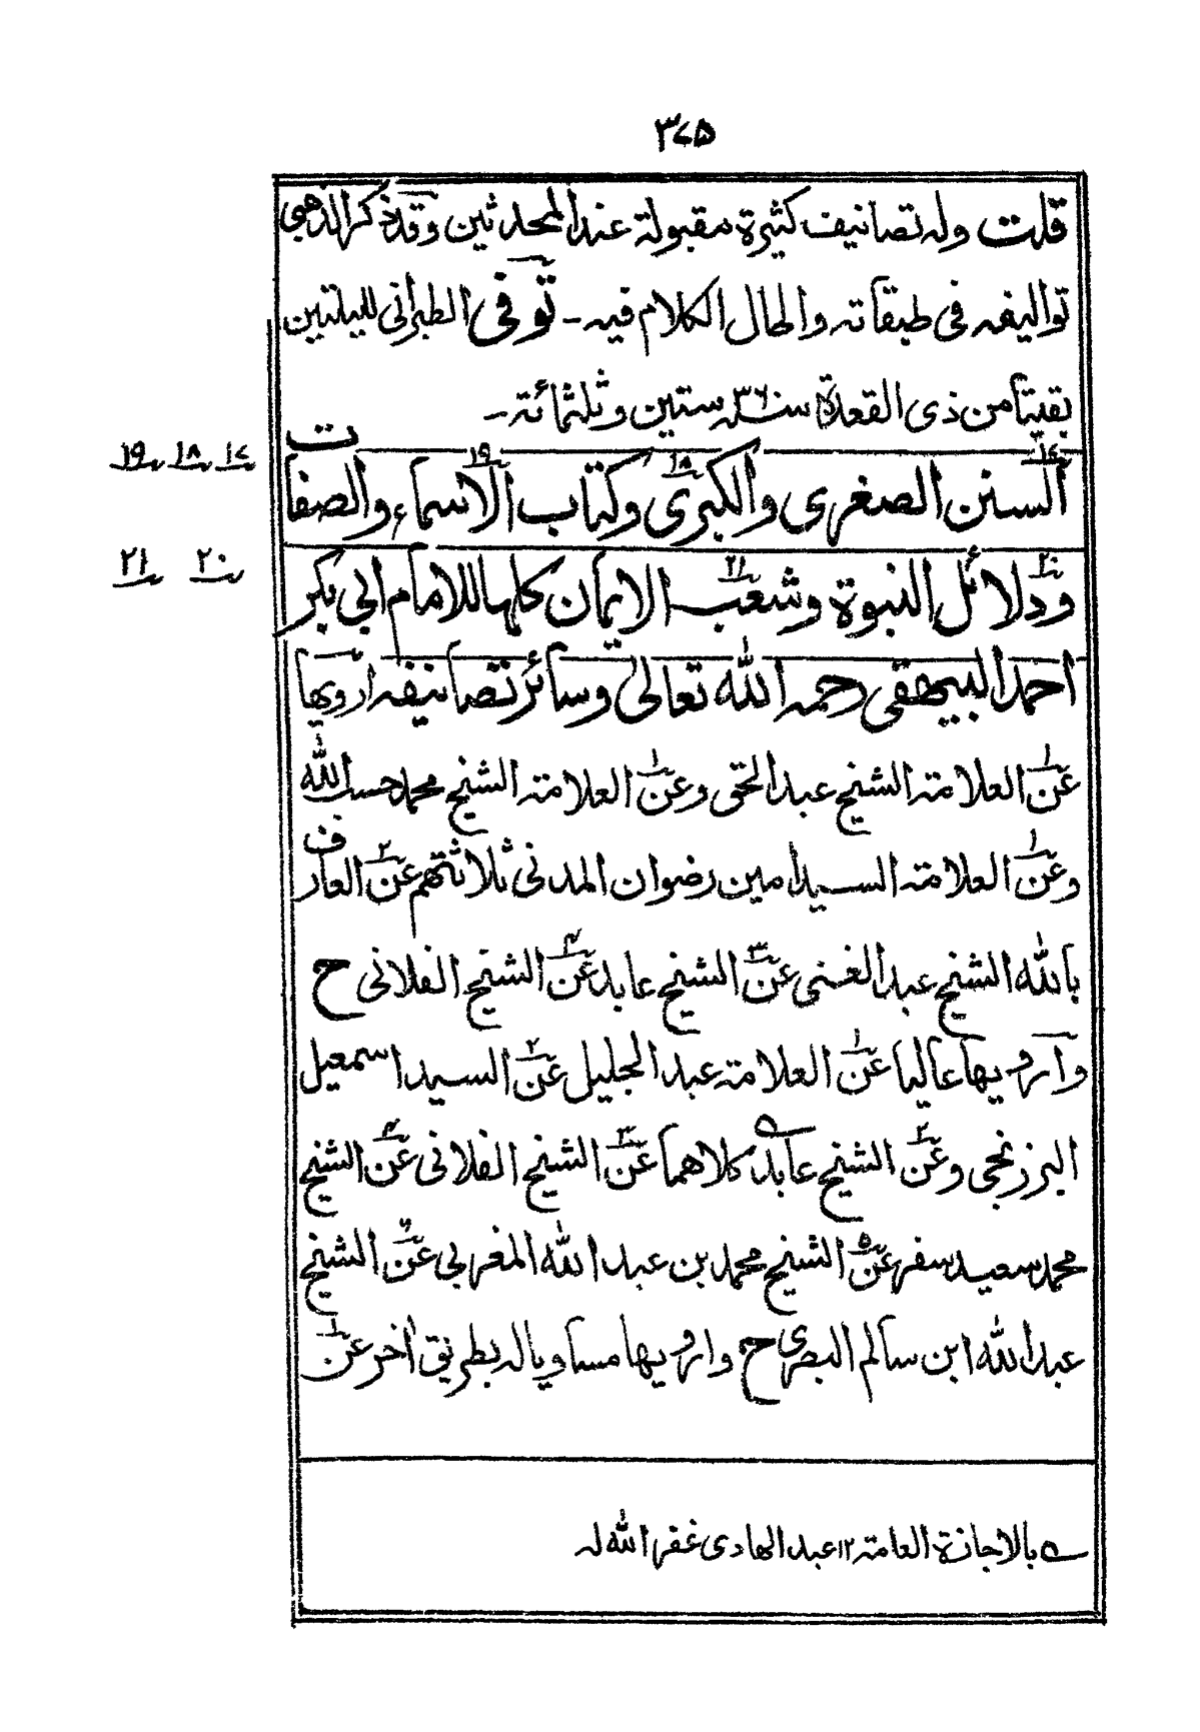 ٣٧٥
قلت وله تصانيف كثيرة مقبولة عند المحدثين وقد ذكر الذهبي
تواليفه في طبقاته واطال الكلام فيه ـ توفى الطبرانى لليلتين
بقيتا من ذى القعدة سنة ٣٦٠ ستين وثلثمائة ـ
١٧ ١٨ ١٩
السنن الصغرى والكبرى وكتاب الاسماء والصفات
٢٠ ٢١
ودلائل النبوة وشعب الايمان كلها للامام ابى بكر
احمد البيهقى رحمه الله تعالى وسائر تصانيفه ارويها
عن١ العلامة الشيخ عبد الحق وعن١ العلامة الشيخ محمد حسب الله
وعن١ العلامة السيد امين رضوان المدنى ثلاثتهم عن٢ العارف
بالله الشيخ عبد الغنى عن٣ الشيخ عابد عن٤ الشيخ الفلانى ح
وارويها عاليا عن١ العلامة عبد الجليل عن٢ السيد اسمعيل
البرزنجى وعن٢ الشيخ عابد كلاهما عن٣ الشيخ الفلانى عن٤ الشيخ
محمد سعيد سفر عن٥ الشيخ محمد بن عبد الله المغربى عن٦ الشيخ
عبد الله ابن سالم البصرى ح وارويها مساويا له بطريق اخر عن١
ے بالاجازة العامة ١٢ عبد الهادى غفر الله له